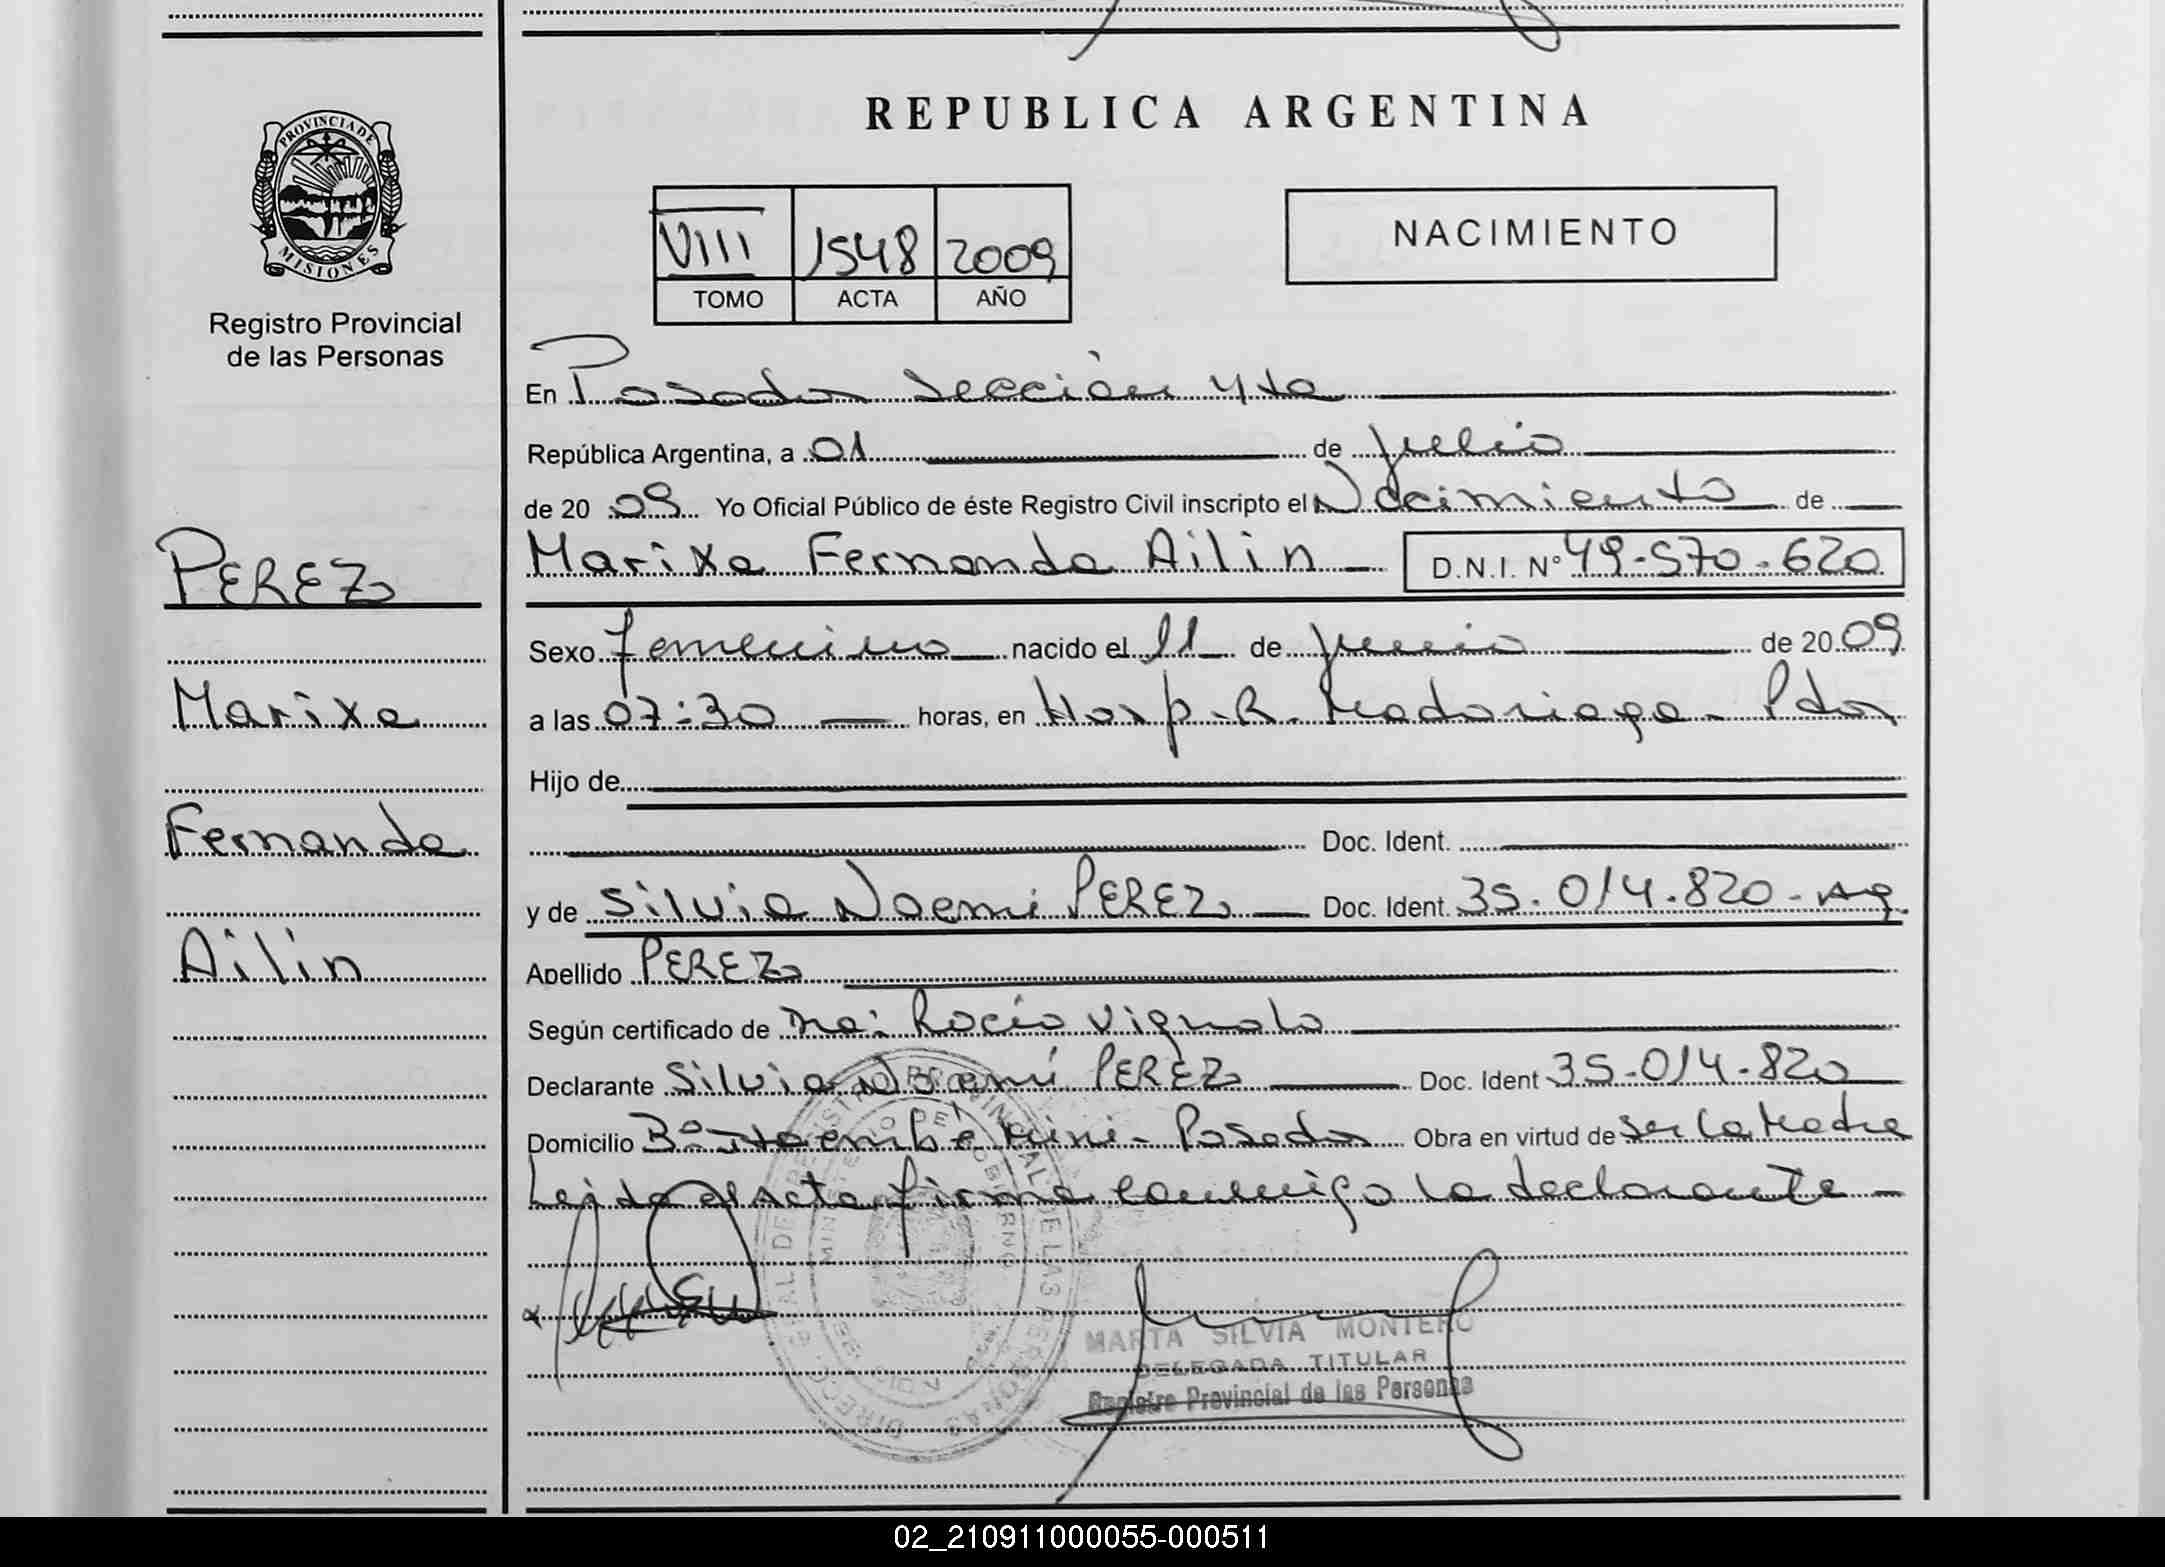 REPUBLICA ARGENTINA
PROVINCIA DE
MISIONES
Registro Provincial
de las Personas
VIII 1548 2009
TOMO ACTA AÑO
NACIMIENTO
En Posadas Sección 4ta
República Argentina, a 01 de julio
de 20 09 Yo Oficial Público de éste Registro Civil inscripto el Nacimiento de
Marixa Fernanda Ailin D.N.I. Nº 49-570-620
PEREZ
Marixa
Fernanda
Ailin
Sexo femenino nacido el 11 de junio de 20 09
a las 07:30 horas, en Hosp. R. Madariaga - Pdas
Hijo de
Doc. Ident.
y de Silvia Noemi PEREZ Doc. Ident. 35.014.820 - Ag
Apellido PEREZ
Según certificado de Dra: Rocío Vignolo
Declarante Silvia Noemí PEREZ Doc. Ident 35-014-820
Domicilio Bº Itaembé Mini - Posadas Obra en virtud de ser la Madre
Leida el Acta firma conmigo la declarante -
MARTA SILVIA MONTERO
DELEGADA TITULAR
Registro Provincial de las Personas
02_210911000055-000511